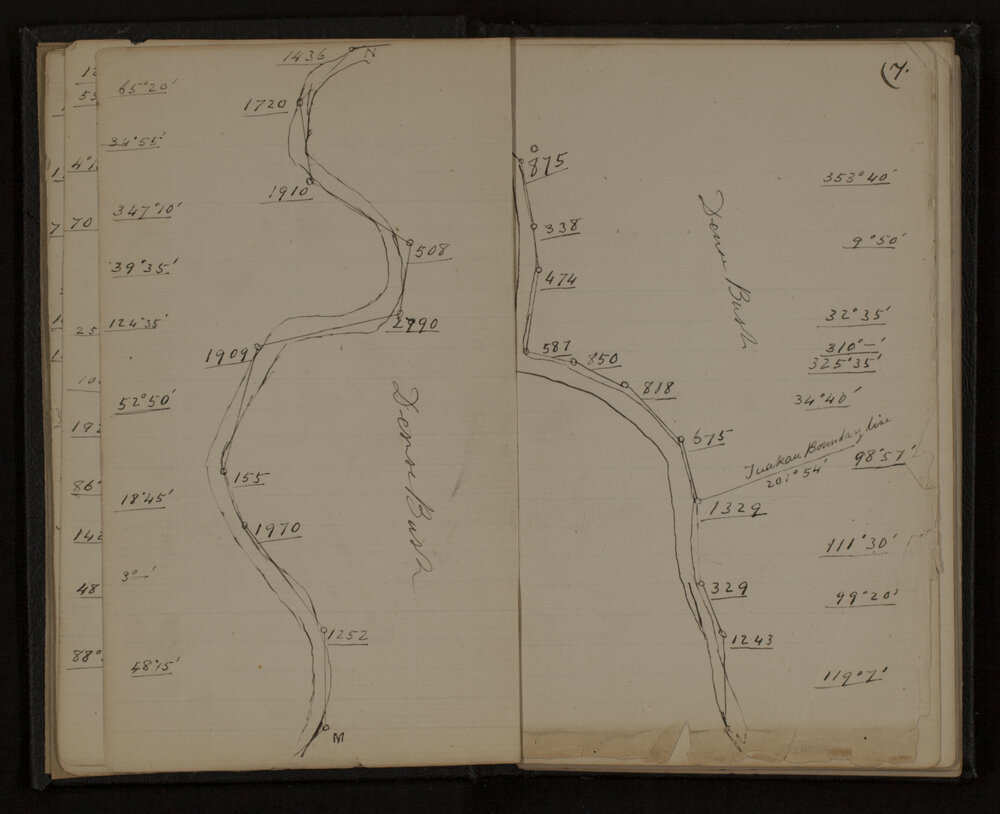 1436
N
65°20'
1720
34°55'
1910
347°10'
508
39°35'
2790
124°35'
1909
52°50'
Dense Bush
155
18°45'
1970
3°—'
1252
48°15'
M
12
55
4°1
70
25
10
192
86°
142
48
88°
(7.
875
353°40'
338
Dense Bush
9°50'
474
32°35'
587
310°—'
850
325°35'
818
34°40'
675
Tuakau Boundary line
201°54'
98°57'
1329
111°30'
329
99°20'
1243
119°7'